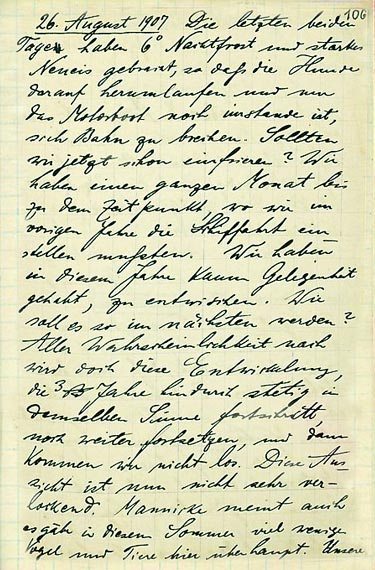 106
26. August 1907 Die letzten beiden
Tage haben 6° Nachtfrost und starkes
Neueis gebracht, so daß die Hunde
darauf herumlaufen und nur
das Motorboot noch imstande ist,
sich Bahn zu brechen. Sollten
wir jetzt schon einfrieren? Wir
haben einen ganzen Monat bis
zu dem Zeitpunkt, wo wir im
vorigen Jahre die Schiffahrt ein
stellen mußten. Wir haben
in diesem Jahre kaum Gelegenheit
gehabt, zu entwischen. Wie
soll es so im nächsten werden?
Aller Wahrscheinlichkeit nach
wird doch diese Entwickelung,
die 3 Jahre hindurch stetig in
demselben Sinne fortschritt,
noch weiter fortsetzen, und dann
kommen wir nicht los. Diese Aus
sicht ist nun nicht sehr ver-
lockend. Mannicke meint auch
es gäbe in diesem Sommer viel weniger
Vögel und Tiere hier überhaupt. Unsere